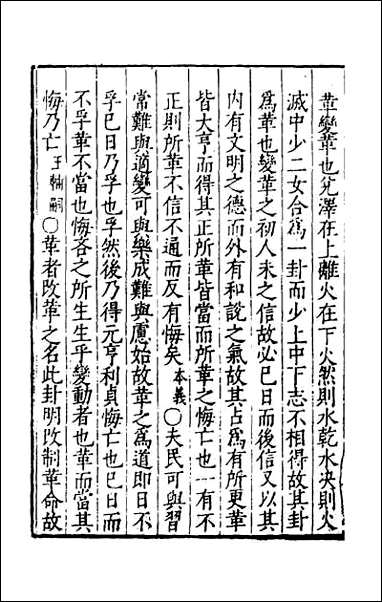 革變革也兌澤在上離火在下火然則水乾水決則火
滅中少二女合為一卦而少上中下志不相得故其卦
為革也變革之初人未之信故必已日而後信又以其
內有文明之德而外有和說之氣故其占為有所更革
皆大亨而得其正所革皆當而所革之悔亡也一有不
正則所革不信不通而反有悔矣本義〇夫民可與習
常難與適變可與樂成難與慮始故革之為道即日不
孚巳日乃孚也孚然後乃得元亨利貞悔亡也巳日而
不孚革不當也悔吝之所生生乎變動者也革而當其
悔乃亡王輔嗣〇革者改革之名此卦明改制革命故